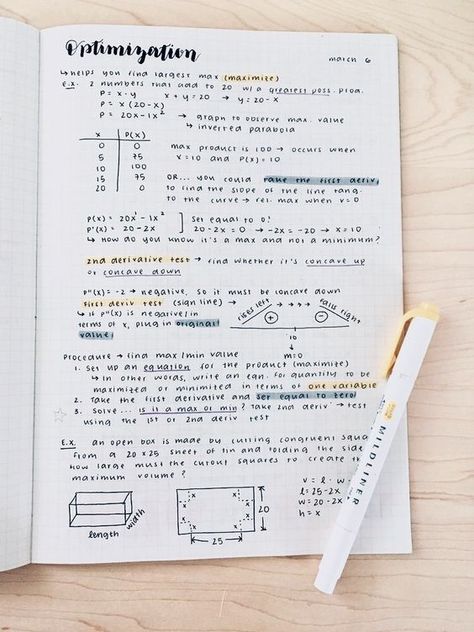 Optimization
march 6
↳ helps you find largest max (maximize)
E.X. 2 numbers that add to 20 w/ a greatest poss. prod.
P = x · y x + y = 20 → y = 20 - x
P = x (20-x)
P = 20x - 1x² → graph to observe max. value
↳ inverted parabola
x P(x)
0 0
5 75
10 100
15 75
20 0
max product is 100 → occurs when
x = 10 and P(x) = 10
OR... you could take the first deriv.
to find the slope of the line tang.
to the curve → rel. max when x = 0
P(x) = 20x' - 1x² ] set equal to 0!
P'(x) = 20 - 2x 20 - 2x = 0 → -2x = -20 → x = 10
↳ How do you know it's a max and not a minimum?
2nd derivative test → find whether it's concave up
or concave down
P"(x) = -2 → negative, so it must be concave down
first deriv test (sign line) →
↳ if P"(x) is negative/in
terms of x, plug in original
value
rises left → → → → falls right
+ -
10
m=0
Procedure → find max/min value
1. Set up an equation for the product (maximize)
↳ In other words, write an eqn. for quantity to be
maximized or minimized in terms of one variable
2. Take the first derivative and set equal to zero!
3. Solve... is it a max or min? Take 2nd deriv → test
using the 1st or 2nd deriv test
E.X. an open box is made by cutting congruent squa
from a 20 x 25 sheet of tin and folding the side
how large must the cutout squares to create th
maximum volume?
length
width
x x
x x
x x
x x
20
25
v = l · w
l = 25 - 2x
w = 20 - 2x
h = x
MILDLINER